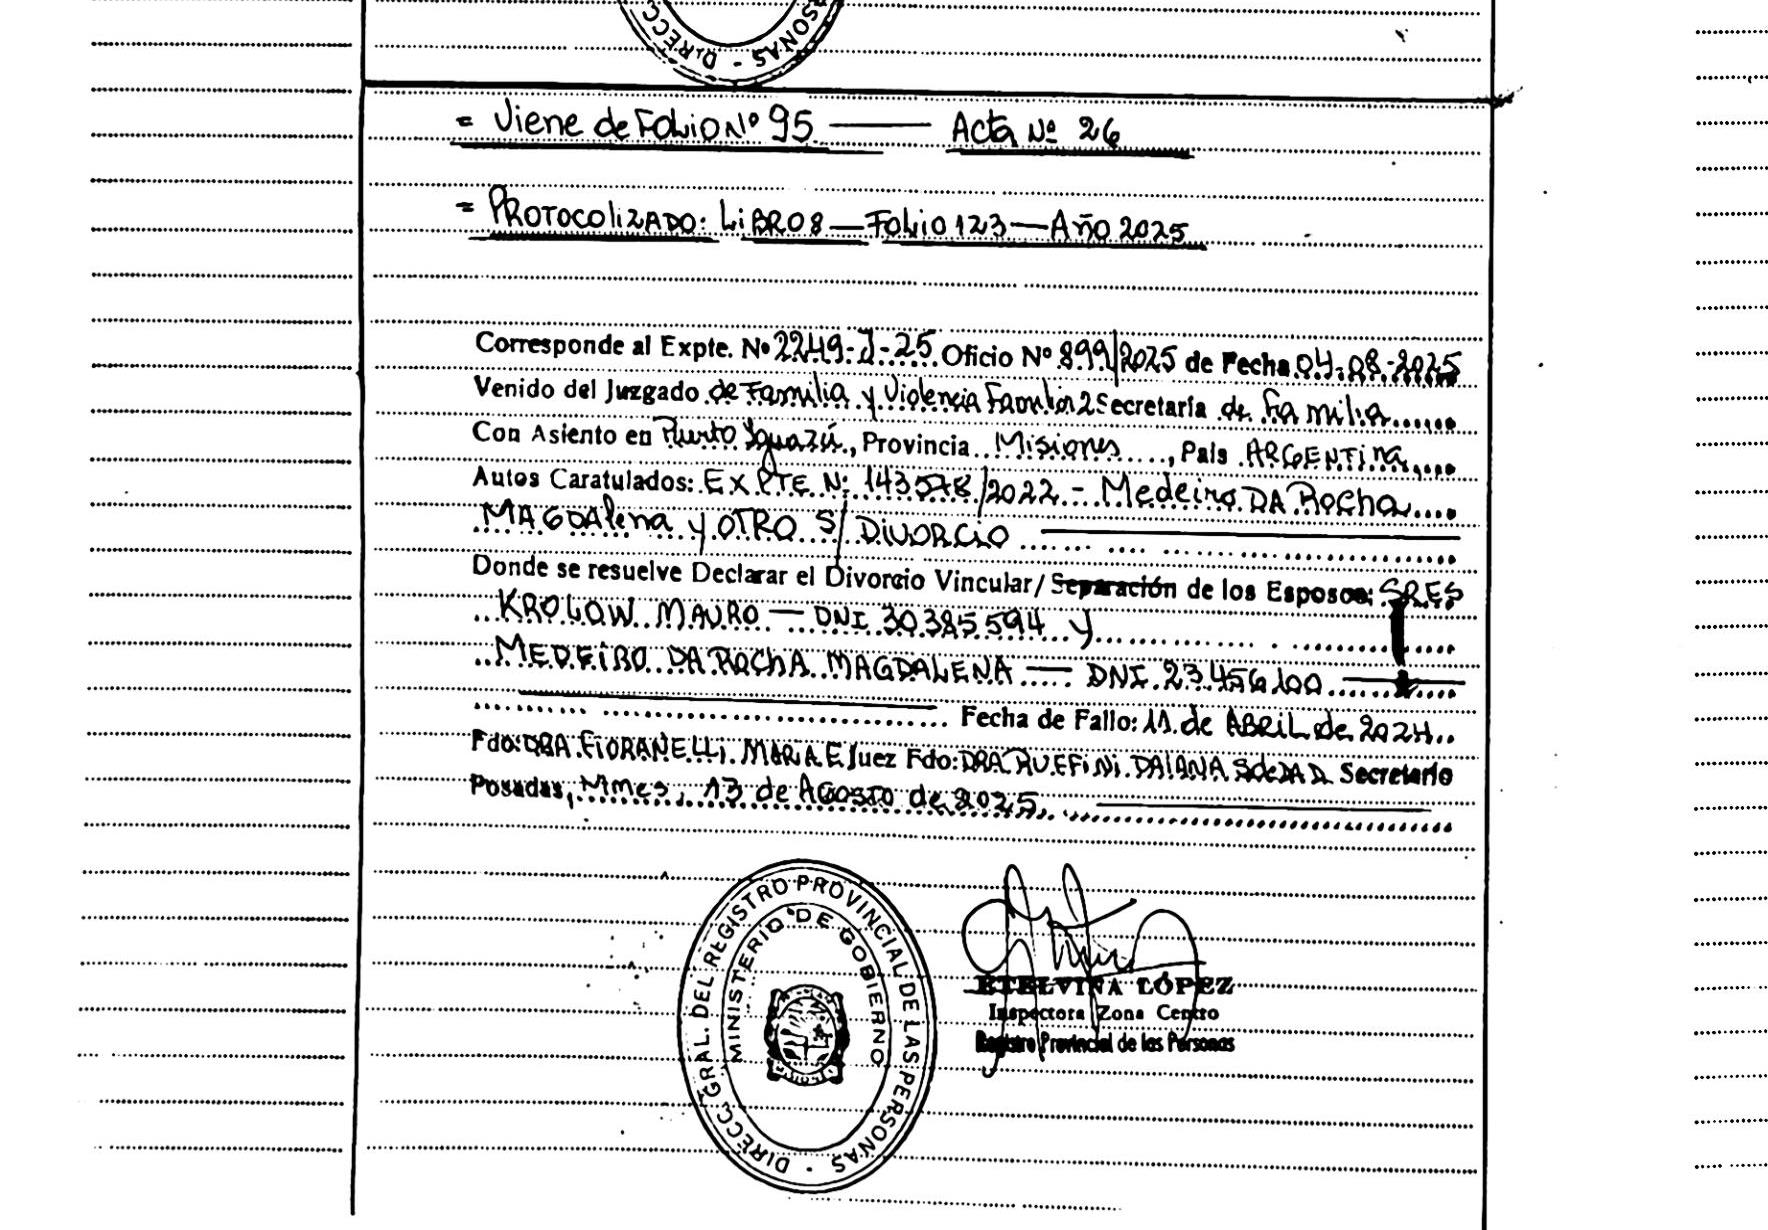 DIRECC. PERSONAS -
= Viene de Folio Nº 95 — Acta Nº 26
= PROTOCOLIZADO: LIBRO 8 — FOLIO 123 — AÑO 2025
Corresponde al Expte. Nº 2249-J-25 Oficio Nº 899/2025 de Fecha 04-08-2025
Venido del Juzgado de Familia y Violencia Familiar 2 Secretaría de Familia
Con Asiento en Puerto Iguazú, Provincia Misiones, País ARGENTINA
Autos Caratulados: EXPTE Nº 143578/2022 - Medeiro DA Rocha
MAGDAlena y OTRO S/ DIVORCIO
Donde se resuelve Declarar el Divorcio Vincular/ Separación de los Esposos: SRES
KROLOW MAURO — DNI 30.385.594 y
MEDEIRO DA ROCHA MAGDALENA — DNI 23.456.100
Fecha de Fallo: 11 de ABRIL de 2024
Fdo: DRA FIORANELLI MARIA E Juez Fdo: DRA RUFFINI DAIANA SOLEDAD Secretario
Posadas, Mnes, 13 de AGOSTO de 2025
DIRECC. GRAL. DEL REGISTRO PROVINCIAL DE LAS PERSONAS -
MINISTERIO DE GOBIERNO
ETELVINA LÓPEZ
Inspectora Zona Centro
Registro Provincial de las Personas